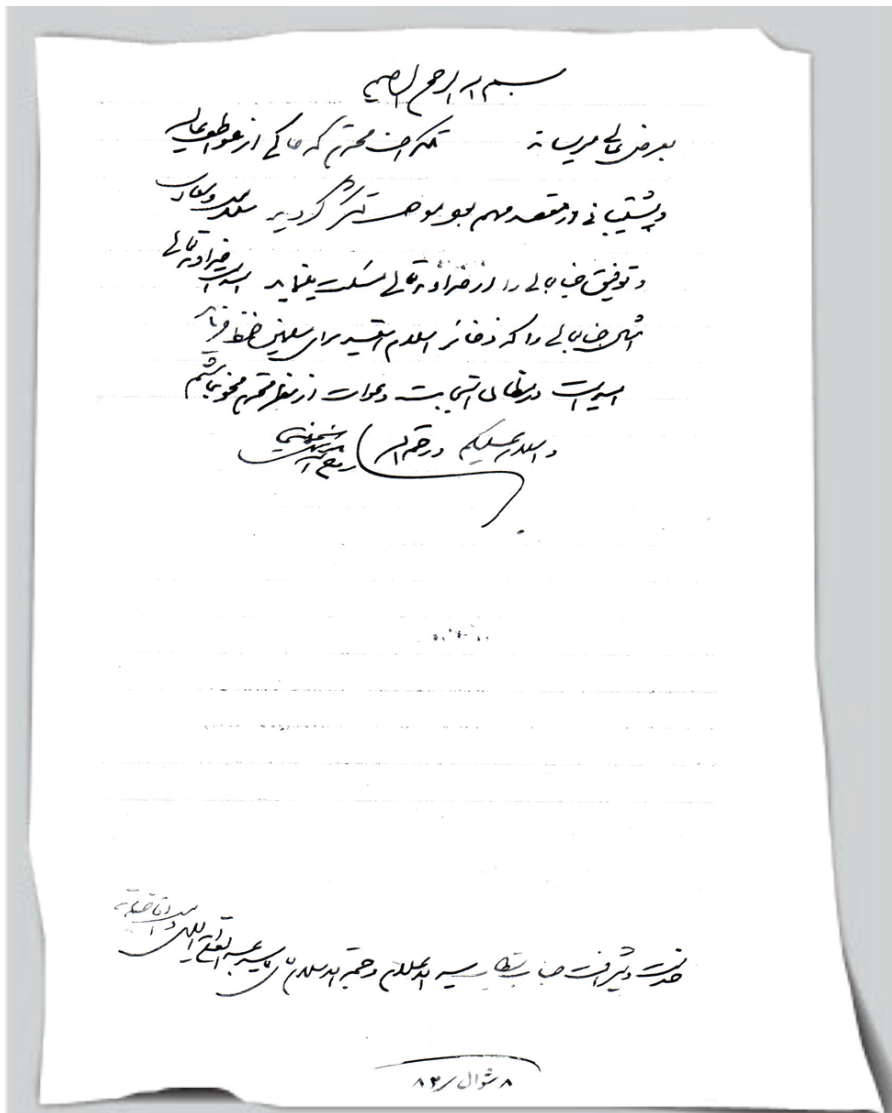 بسم الله الرحمن الرحیم
بعرض عالی میرساند تلگراف محترم که حاکی از عواطف عالیه
و پشتیبانی در مقصد مهم بود موجب تشکر گردید سلامت و سعادت
و توفیق جنابعالی را از خداوند تعالی مسئلت مینماید امید است خداوند تعالی
امثال جنابعالی را که ذخائر اسلام هستید برای مسلمین حفظ فرماید
امید است در مظان استجابت دعوات از نظر محترم محو نباشم
والسلام علیکم و رحمة الله روح الله الموسوی الخمینی
خدمت ذیشرافت جناب مستطاب سید الاعلام و حجة الاسلام آقای سید
دامت افاضاته
۸ شوال ۸۲